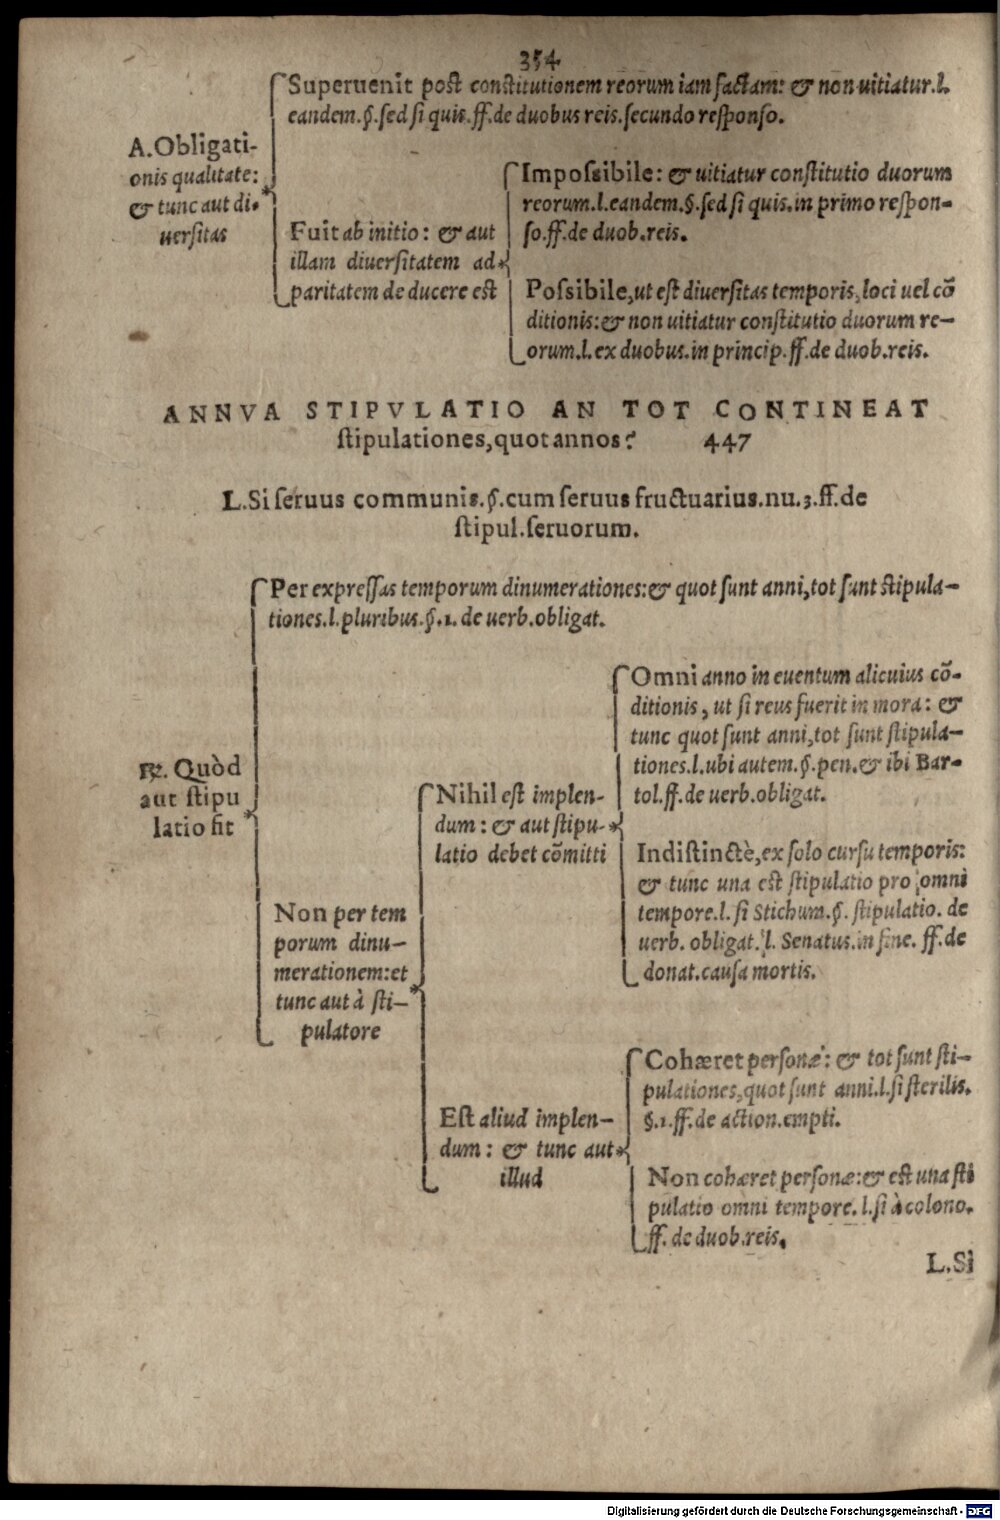 354
Superuenit post constitutionem reorum iam factam: & non uitiatur.l.
eandem.§.sed si quis.ff.de duobus reis.secundo responso.
A.Obligati-
onis qualitate:
& tunc aut di-
uersitas
Fuit ab initio: & aut
illam diuersitatem ad
paritatem de ducere est
Impossibile: & uitiatur constitutio duorum
reorum.l.eandem.§.sed si quis.in primo respon-
so.ff.de duob.reis.
Possibile,ut est diuersitas temporis,loci uel cõ
ditionis:& non uitiatur constitutio duorum re-
orum.l.ex duobus.in princip.ff.de duob.reis.
ANNVA STIPVLATIO AN TOT CONTINEAT
stipulationes,quot annos? 447
L.Si seruus communis.§.cum seruus fructuarius.nu.3.ff.de
stipul.seruorum.
℞. Quòd
aut stipu
latio fit
Per expressas temporum dinumerationes:& quot sunt anni,tot sunt stipula-
tiones.l.pluribus.§.1. de uerb.obligat.
Non per tem
porum dinu-
merationem:et
tunc aut à sti-
pulatore
Nihil est implen-
dum: & aut stipu-
latio debet cõmitti
Omni anno in euentum alicuius cõ-
ditionis, ut si reus fuerit in mora: &
tunc quot sunt anni,tot sunt stipula-
tiones.l.ubi autem.§.pen.& ibi Bar-
tol.ff.de uerb.obligat.
Indistinctè,ex solo cursu temporis:
& tunc una est stipulatio pro omni
tempore.l. si Stichum.§. stipulatio. de
uerb. obligat. l. Senatus.in fine. ff.de
donat.causa mortis.
Est aliud implen-
dum: & tunc aut
illud
Cohæret personæ: & tot sunt sti-
pulationes,quot sunt anni.l.si sterilis.
§.1.ff.de action.empti.
Non cohæret personæ:& est una sti
pulatio omni tempore. l.si à colono.
ff. de duob.reis.
L.Si
Digitalisierung gefördert durch die Deutsche Forschungsgemeinschaft - DFG